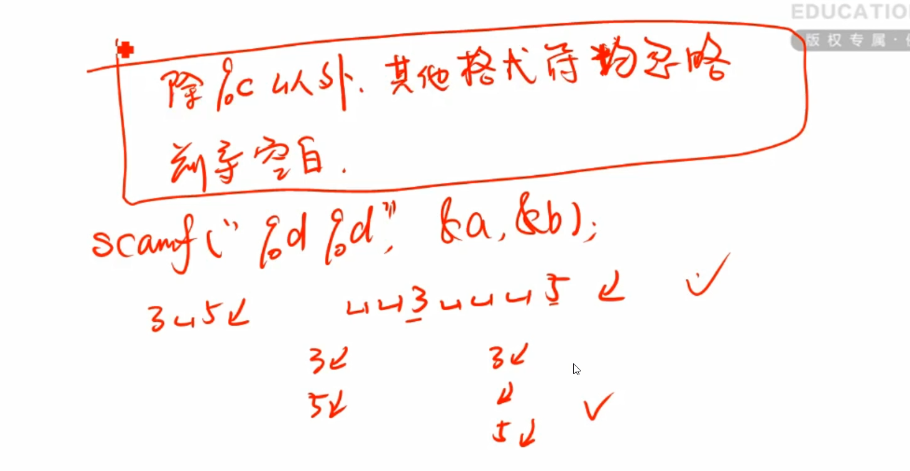 EDUCATIO
版权专属·
除%c以外.其他格式符均忽略
前导空白.
scanf("%d %d", &a, &b);
3␣5↙ ␣␣3␣␣␣5↙ ✓
3↙ 3↙
5↙ ↙ ✓
5↙